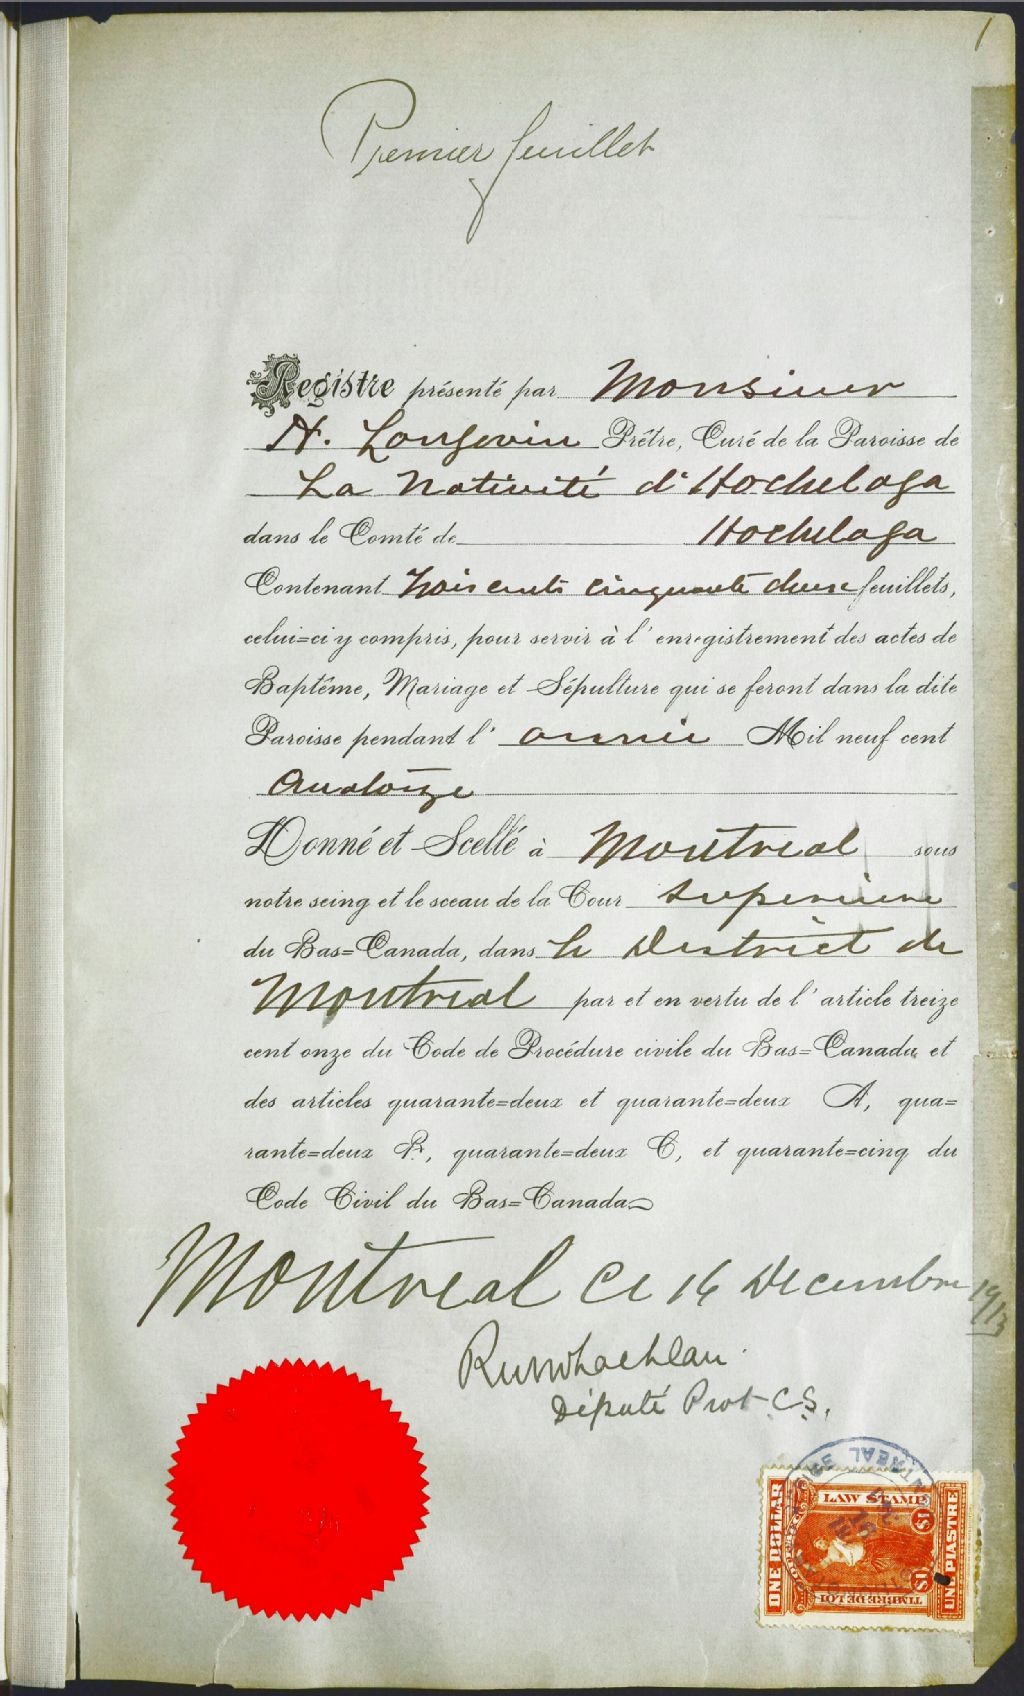 1
Premier feuillet
Registre présenté par Monsieur
A. Langevin Prêtre, Curé de la Paroisse de
La Nativité d'Hochelaga
dans le Comté de Hochelaga
Contenant trois cents cinquante deux feuillets,
celui=ci y compris, pour servir à l'enregistrement des actes de
Baptême, Mariage et Sépulture qui se feront dans la dite
Paroisse pendant l'année Mil neuf cent
Quatorze
Donné et Scellé à Montreal sous
notre seing et le sceau de la Cour Superieure
du Bas=Canada, dans le District de
Montreal par et en vertu de l'article treize
cent onze du Code de Procédure civile du Bas=Canada et
des articles quarante=deux et quarante=deux A, qua=
rante=deux B, quarante=deux C, et quarante=cinq du
Code Civil du Bas=Canada
Montreal ce 16 Decembre 1913
Député Prot. C.S.
LAW STAMP
ONE DOLLAR
$1
$1
UNE PIASTRE
TIMBRE DE LOI